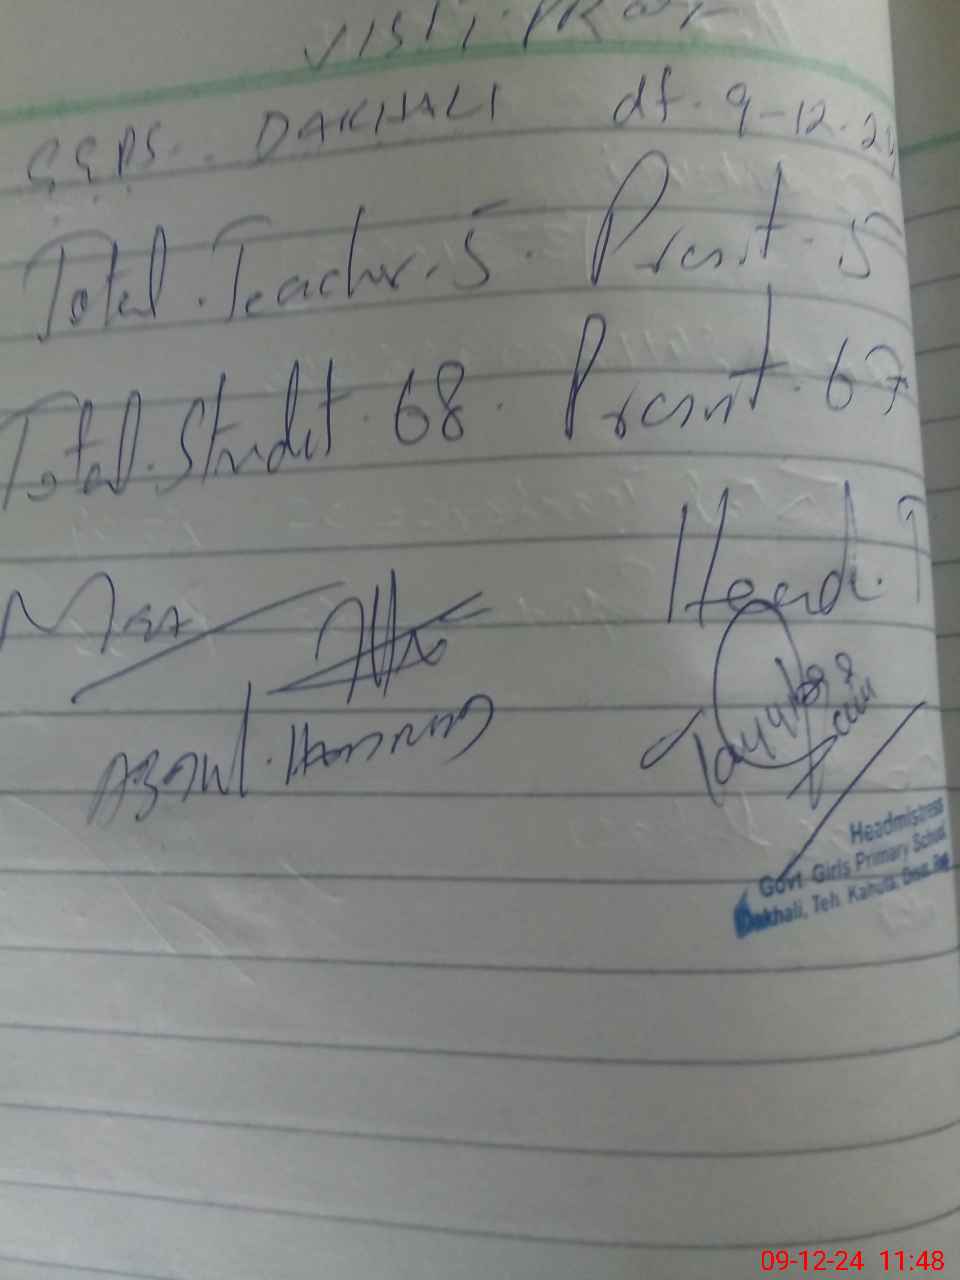 VISIT. PROF
GGPS.. DAKHALI dt. 9-12.24
Total. Teacher. 5. Presnt. 5
Total. Studet. 68. Presnt. 67
Mea
Head. T
Headmistress
Govt. Girls Primary School
Dakhali, Teh. Kahuta, Distt. Rwp
09-12-24 11:48